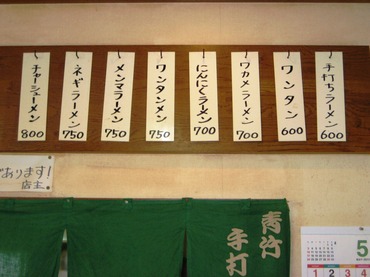 手打ちラーメン
600
ワンタン
600
ワカメラーメン
700
にんにくラーメン
700
ワンタンメン
750
メンマラーメン
750
ネギラーメン
750
チャーシューメン
800
であります!
店主
青竹
手打
5